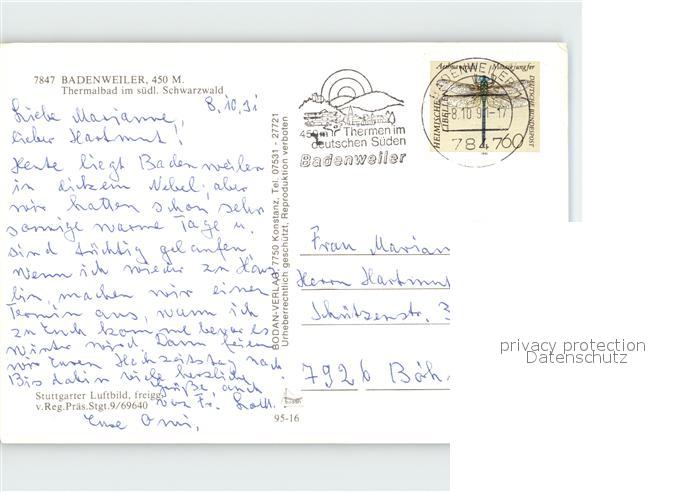 7847 BADENWEILER, 450 M.
Thermalbad im südl. Schwarzwald
8.10.91
Liebe Marianne,
lieber Hartmut!
Heute liegt Badenweiler
in dickem Nebel, aber
wir hatten schon sehr
sonnige warme Tage u.
sind tüchtig gelaufen.
Wenn ich wieder zu Hau
bin, machen wir einen
Termin aus, wann ich
zu Euch komme bevor es
Winter wird. Dann feiern
wir Euren Hochzeitstag nach.
Bis dahin viele herzliche
Grüße auch
von Fr.
Eure Omi,
Stuttgarter Luftbild, freigg.
v.Reg.Präs.Stgt.9/69640
95-16
BODAN-VERLAG, 7750 Konstanz, Tel. 07531 - 27721
Urheberrechtlich geschützt, Reproduktion verboten
450 m Thermen im
deutschen Süden
Badenweiler
BADENWEILER 1
-8.10.91-17
7847
HEIMISCHE
LIBELLEN
DEUTSCHE BUNDESPOST
60
Frau Marian
Herrn Hartmut
Schützenstr. 3
7926 Böh
privacy protection
Datenschutz